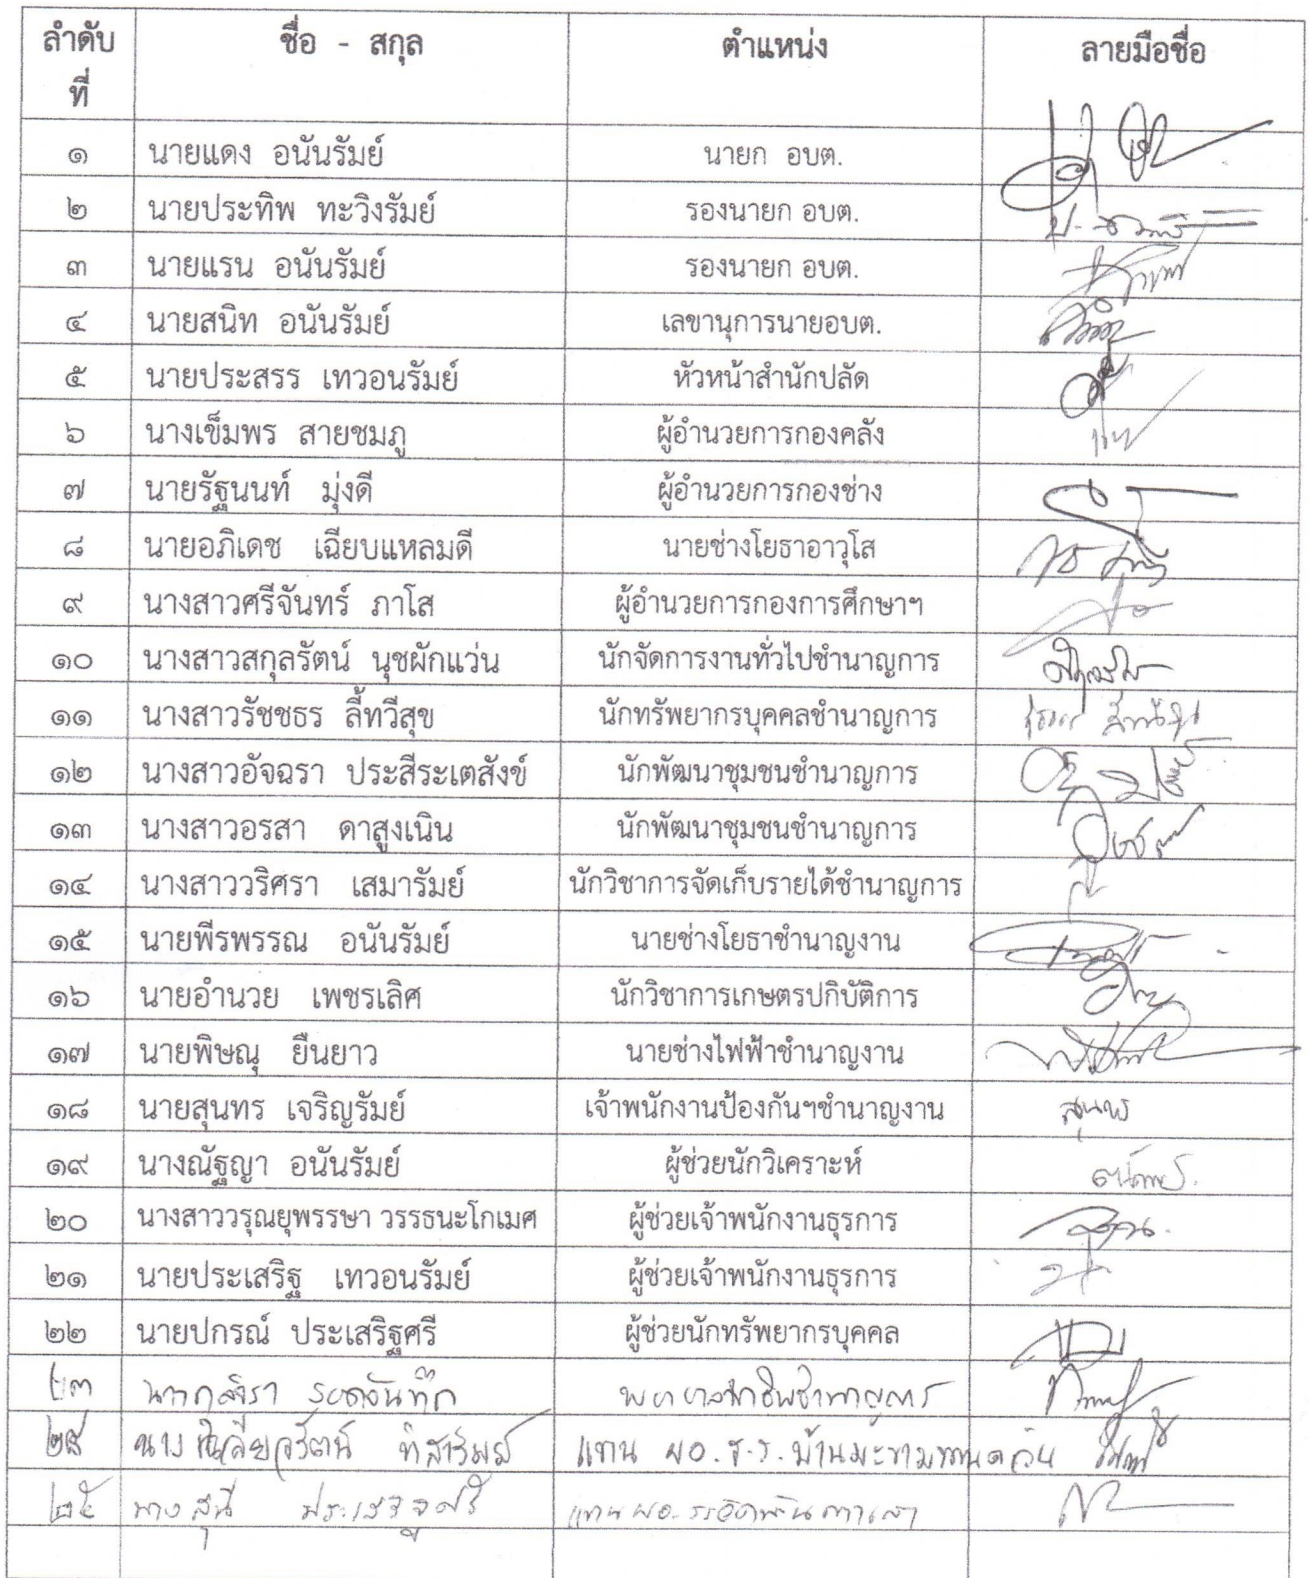 ลำดับที่ ชื่อ - สกุล ตำแหน่ง ลายมือชื่อ
๑ นายแดง อนันรัมย์ นายก อบต.
๒ นายประทิพ ทะวิงรัมย์ รองนายก อบต.
๓ นายแรน อนันรัมย์ รองนายก อบต.
๔ นายสนิท อนันรัมย์ เลขานุการนายอบต.
๕ นายประสรร เทวอนรัมย์ หัวหน้าสำนักปลัด
๖ นางเข็มพร สายชมภู ผู้อำนวยการกองคลัง
๗ นายรัฐนนท์ มุ่งดี ผู้อำนวยการกองช่าง
๘ นายอภิเดช เฉียบแหลมดี นายช่างโยธาอาวุโส
๙ นางสาวศรีจันทร์ ภาโส ผู้อำนวยการกองการศึกษาฯ
๑๐ นางสาวสกุลรัตน์ นุชผักแว่น นักจัดการงานทั่วไปชำนาญการ
๑๑ นางสาวรัชชธร ลี้ทวีสุข นักทรัพยากรบุคคลชำนาญการ
๑๒ นางสาวอัจฉรา ประสีระเตสังข์ นักพัฒนาชุมชนชำนาญการ
๑๓ นางสาวอรสา ดาสูงเนิน นักพัฒนาชุมชนชำนาญการ
๑๔ นางสาววริศรา เสมารัมย์ นักวิชาการจัดเก็บรายได้ชำนาญการ
๑๕ นายพีรพรรณ อนันรัมย์ นายช่างโยธาชำนาญงาน
๑๖ นายอำนวย เพชรเลิศ นักวิชาการเกษตรปกิบัติการ
๑๗ นายพิษณุ ยืนยาว นายช่างไฟฟ้าชำนาญงาน
๑๘ นายสุนทร เจริญรัมย์ เจ้าพนักงานป้องกันฯชำนาญงาน
๑๙ นางณัฐญา อนันรัมย์ ผู้ช่วยนักวิเคราะห์
๒๐ นางสาววรุณยุพรรษา วรรธนะโกเมศ ผู้ช่วยเจ้าพนักงานธุรการ
๒๑ นายประเสริฐ เทวอนรัมย์ ผู้ช่วยเจ้าพนักงานธุรการ
๒๒ นายปกรณ์ ประเสริฐศรี ผู้ช่วยนักทรัพยากรบุคคล
๒๓ พยาบาลวิชาชีพชำนาญการ
๒๔ นาง แทน ผอ.ร.ร.บ้านมะขาม
๒๕ นาง สุนี ประเสริฐศรี แทน ผอ.